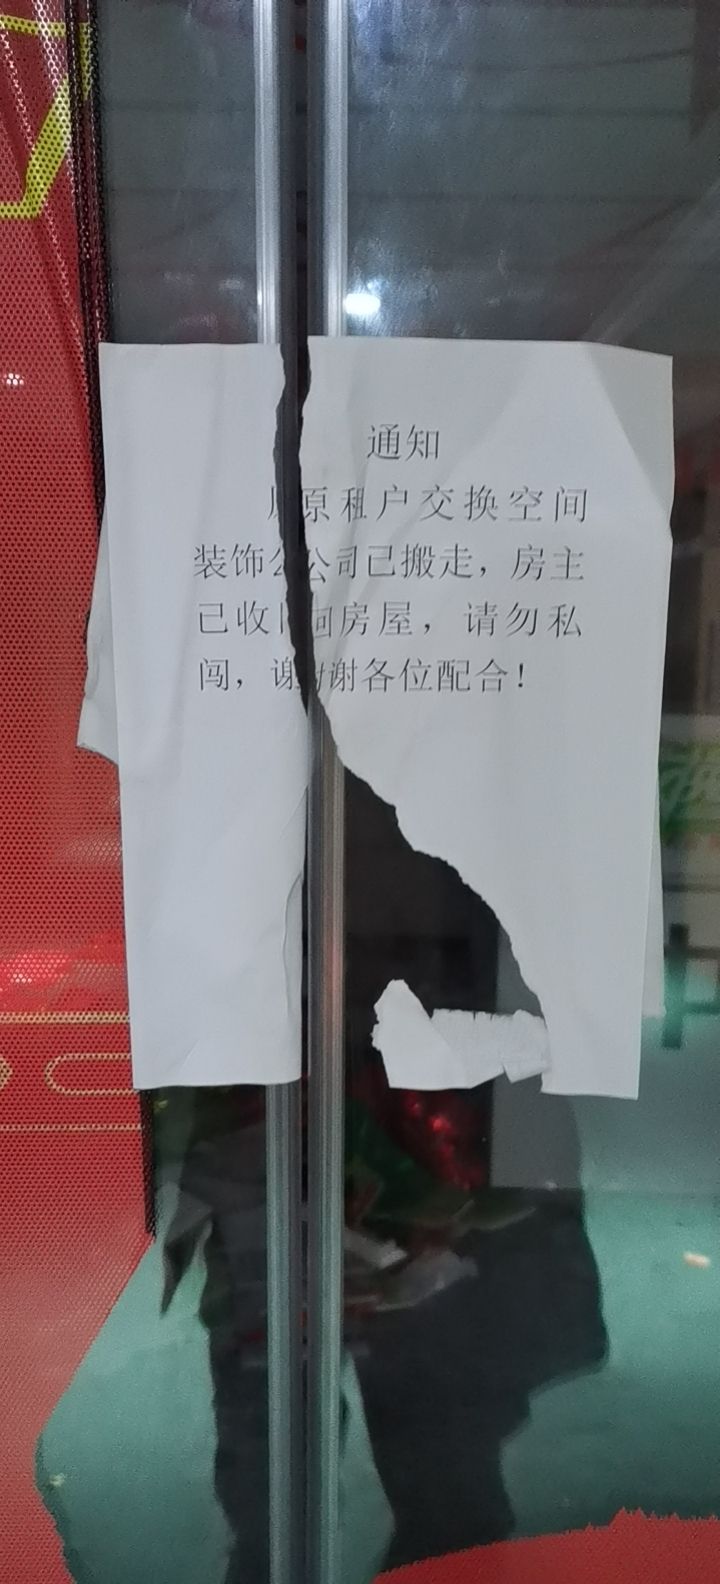 通知
原租户交换空间
装饰公司已搬走，房主
已收回房屋，请勿私
闯，谢谢各位配合！